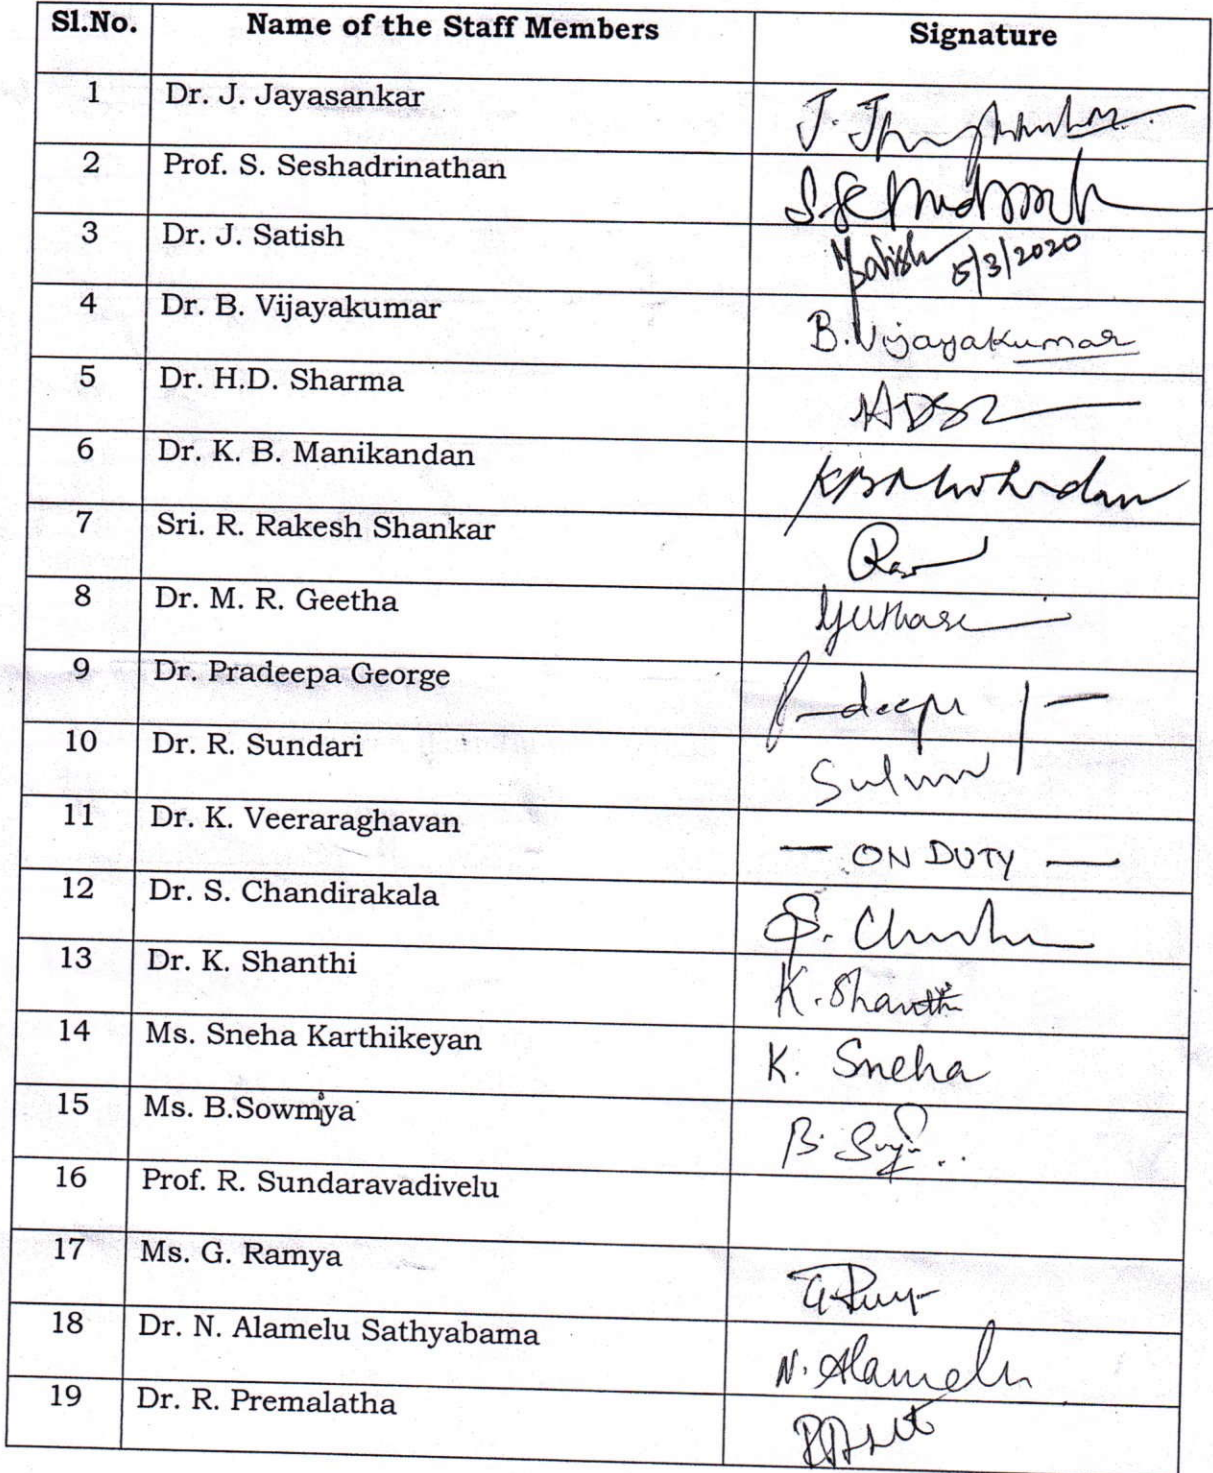 Sl.No. Name of the Staff Members Signature
1 Dr. J. Jayasankar
2 Prof. S. Seshadrinathan
3 Dr. J. Satish 5/3/2020
4 Dr. B. Vijayakumar B. Vijayakumar
5 Dr. H.D. Sharma
6 Dr. K. B. Manikandan
7 Sri. R. Rakesh Shankar
8 Dr. M. R. Geetha
9 Dr. Pradeepa George
10 Dr. R. Sundari
11 Dr. K. Veeraraghavan — ON DUTY —
12 Dr. S. Chandirakala
13 Dr. K. Shanthi K. Shanthi
14 Ms. Sneha Karthikeyan K. Sneha
15 Ms. B.Sowmiya
16 Prof. R. Sundaravadivelu
17 Ms. G. Ramya
18 Dr. N. Alamelu Sathyabama N. Alamelu
19 Dr. R. Premalatha